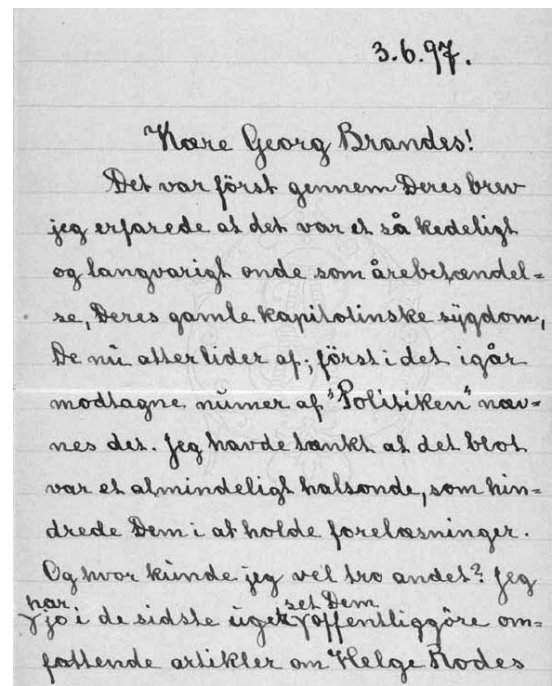 3.6.97.
Kære Georg Brandes!
Det var först gennem Deres brev
jeg erfarede at det var et så kedeligt
og langvarigt onde som årebetændel=
se, Deres gamle kapitolinske sygdom,
De nu atter lider af; först i det igår
modtagne numer af "Politiken" næv=
nes det. Jeg havde tænkt at det blot
var et almindeligt halsonde, som hin=
drede Dem i at holde forelæsninger.
Og hvor kunde jeg vel tro andet? Jeg
har set Dem
jo i de sidste uger offentliggöre om=
fattende artikler om Helge Rodes